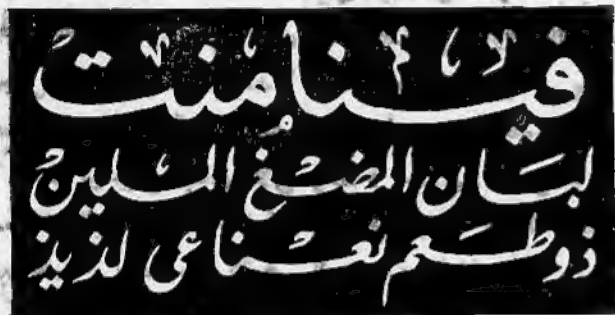 فينامنت
لبان المضغ الملين
ذو طعم نعناعى لذيذ